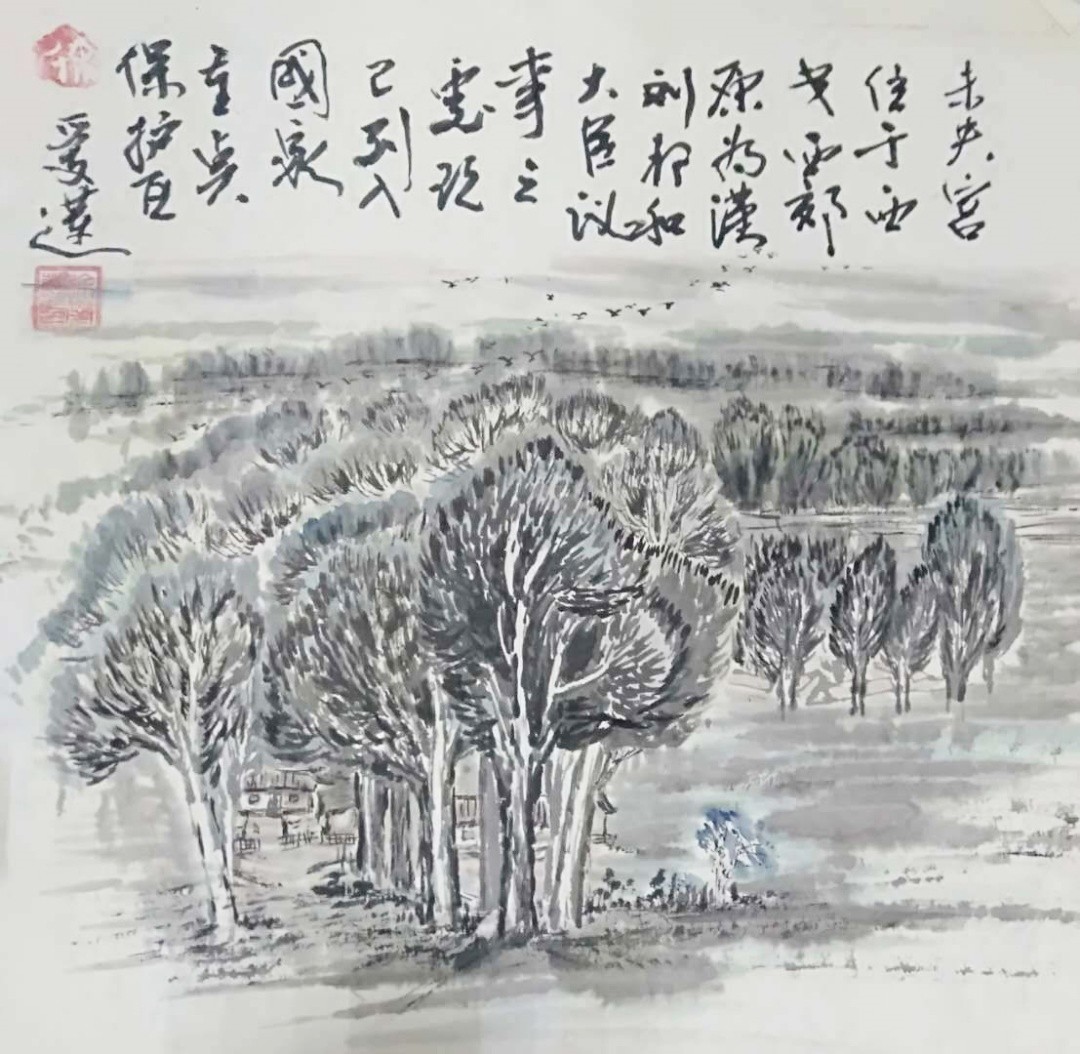 未央宫
位于西
安西郊
原為漢
刘邦和
大臣议
事之
處现
已列入
國家
重点
保护区
爱莲